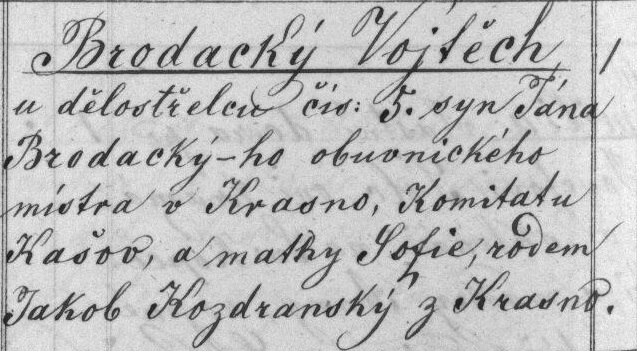 Brodacký Vojtěch /
u dělostřelců čís: 5. syn Jána
Brodacký-ho obuvnického
místra v Krasno, Komitatu
Kašov, a mathy Sofie, rodem
Jakob Kozdranský z Krasno.